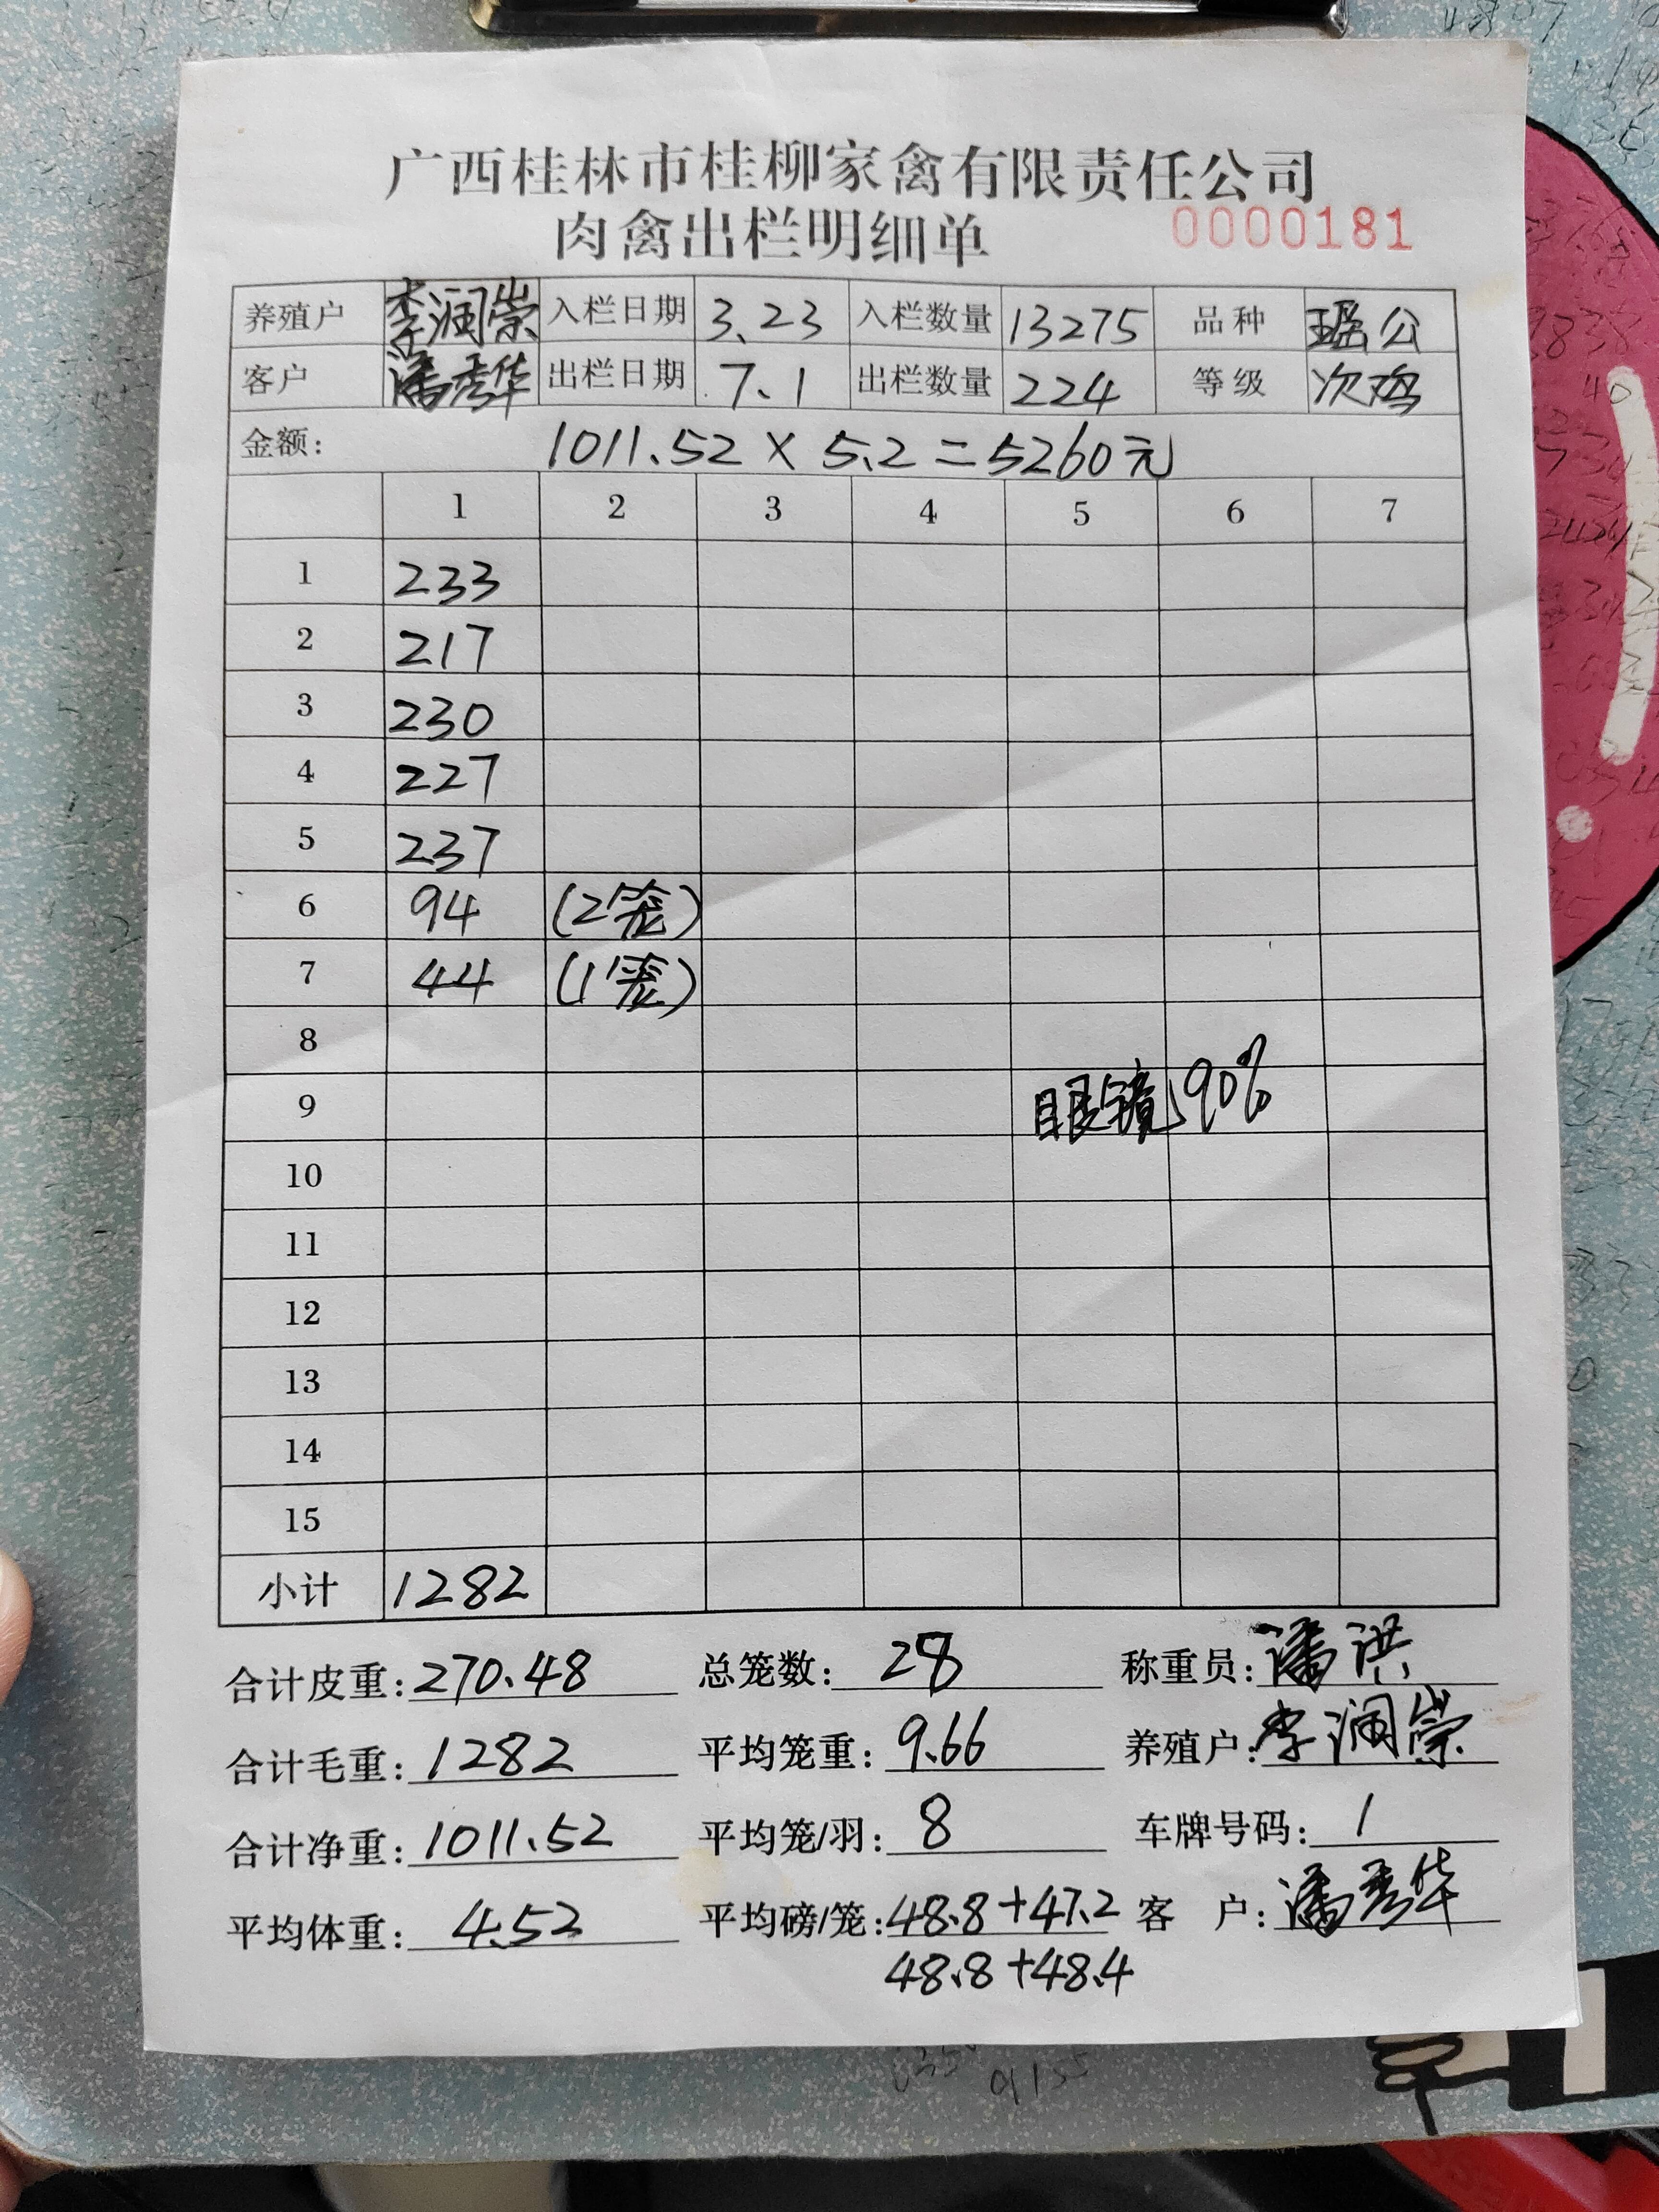 广西桂林市桂柳家禽有限责任公司
肉禽出栏明细单 0000181
养殖户 李润崇 入栏日期 3.23 入栏数量 13275 品种 瑶公
客户 潘秀华 出栏日期 7.1 出栏数量 224 等级 次鸡
金额: 1011.52 × 5.2 = 5260元
1 2 3 4 5 6 7
1 233
2 217
3 230
4 227
5 237
6 94 (2笼)
7 44 (1笼)
8
9 眼镜90%
10
11
12
13
14
15
小计 1282
合计皮重: 270.48 总笼数: 28 称重员: 潘洪
合计毛重: 1282 平均笼重: 9.66 养殖户: 李润崇
合计净重: 1011.52 平均笼/羽: 8 车牌号码: 1
平均体重: 4.52 平均磅/笼: 48.8+47.2 客 户: 潘秀华
48.8+48.4